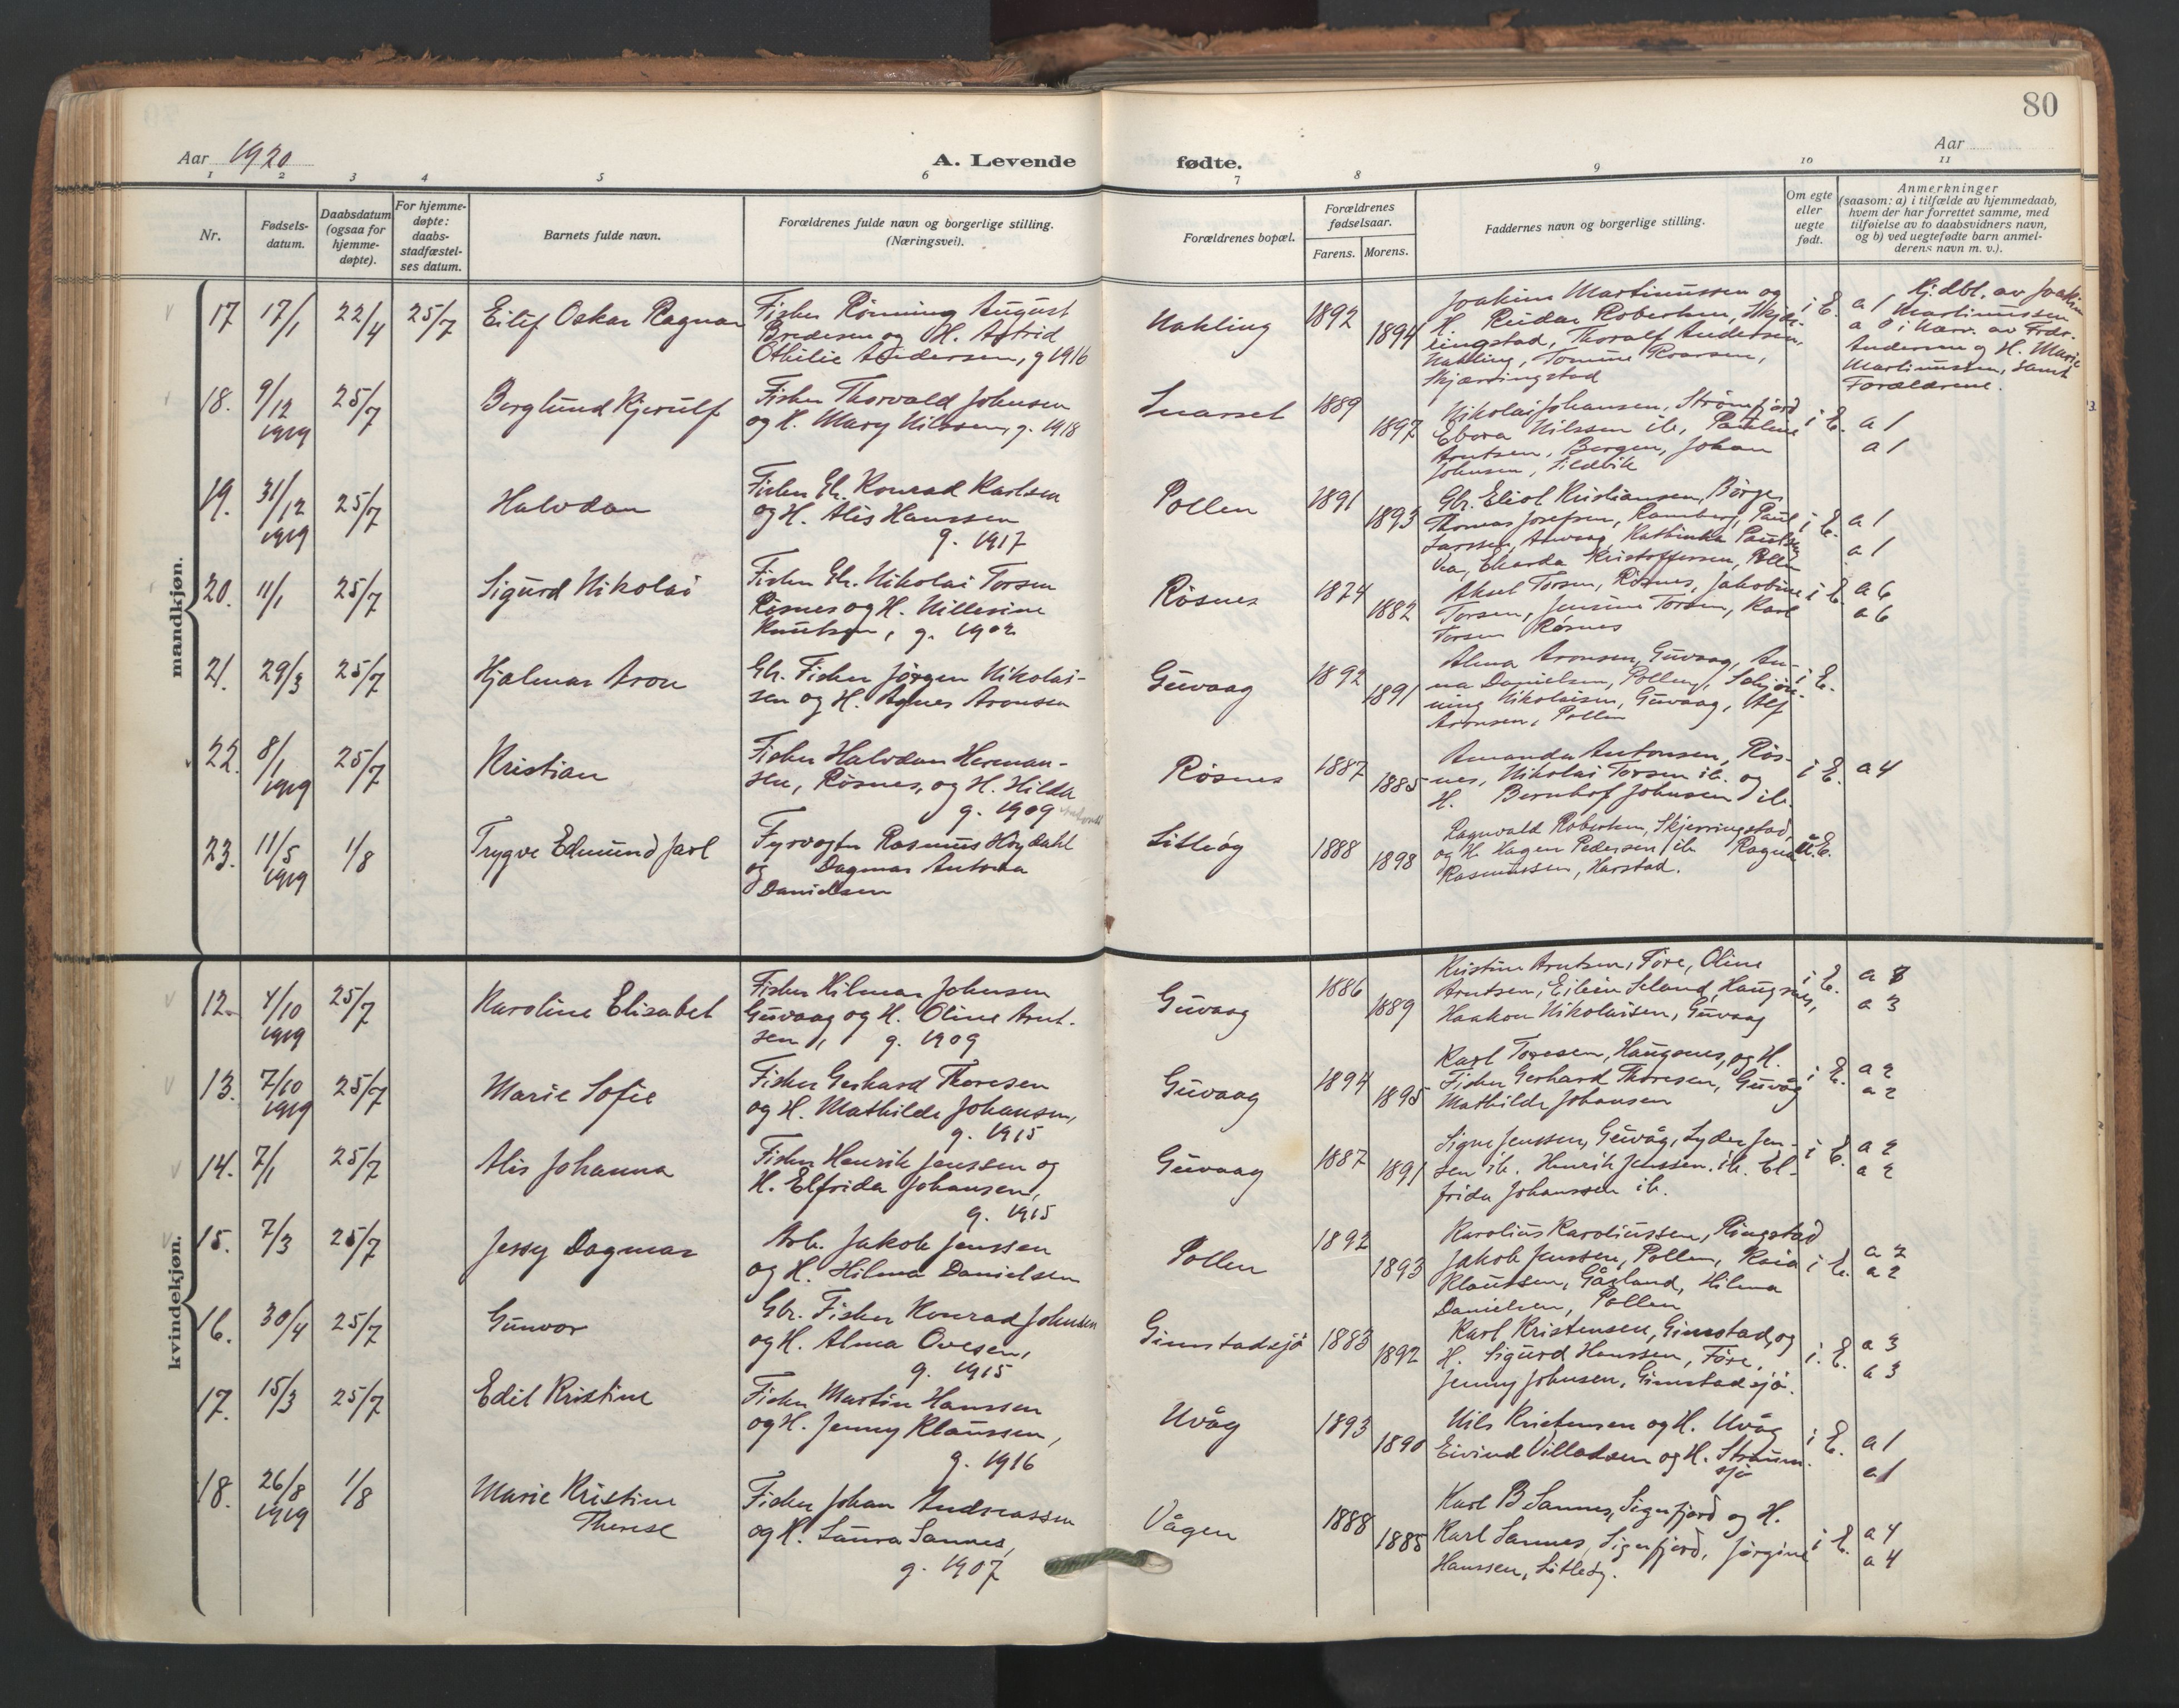 80
Aar 1920
A. Levende fødte.
Aar
1 2 3 4 5 6 7 8 9 10 11
Nr.
Fødsels-
datum.
Daabsdatum
(ogsaa for
hjemme-
døpte).
For hjemme-
døpte:
daabs-
stadfæstel-
ses datum.
Barnets fulde navn.
Forældrenes fulde navn og borgerlige stilling.
(Næringsvei).
Forældrenes bopæl.
Forældrenes
fødselsaar.
Farens. Morens.
Faddernes navn og borgerlige stilling.
Om egte
eller
uegte
født.
Anmerkninger
(saasom: a) i tilfælde av hjemmedaab,
hvem der har forrettet samme, med
tilføielse av to daabsvidners navn,
og b) ved uegtefødte barn anmel-
derens navn m. v.).
mandkjøn.
17 17/1 22/4 25/7 Eilif Oskar Ragnar
Fisker Rönning August
Bredesen og H. Astrid
Othilie Andersen, g 1916
Nakling 1892 1894
Joakim Martinussen og
H. Reidar Robertsen, Skjær-
ringstad, Thoralf Andersen,
Nakling, Tomine Roarsen,
Skjærringstad
i E. a 1
a 0
Hj.dbt. av Joakim
Martinussen
i Nærv. av Fredr.
Andersen og H. Marie
Martinussen, samt
Forældrene.
18. 9/12 1919 25/7 Berglund Kjerulf
Fisker Thorvald Johnsen
og H. Mary Nilssen, g. 1918
Snarset 1889 1897
Nikolai Johansen, Strömfjord
Ebora Nilssen ib, Pauline
Arntsen, Bergen, Johan
Johnsen, Sildvik
i E. a 1
a 1
19. 31/12 1919 25/7 Halvdan
Fisker Gb. Konrad Karlsen
og H. Alis Hanssen
g. 1917
Pollen 1891 1893
Gbr. Eliot Kristiansen, Börge
Thomas Josefsen, Ramberg, Paul
Larssen, Kathinka Paulsen
Vea, Ekarda Kristoffersen, Pollen
i E. a 1
a 1
20. 11/1 25/7 Sigurd Nikolai
Fisker Gb. Nikolai Torsen
Rösnes og H. Nillesine
Knutsen, g. 1902
Rösnes 1874 1882
Aksel Torsen, Rösnes, Jakobine
Torsen, Jensine Torsen, Karl
Torsen Rösnes
i E. a 6
a 6
21. 29/3 25/7 Hjalmar Aron
Gb. Fisker Jörgen Nikolai-
sen og H. Agnes Aronsen
Guvaag 1892 1891
Alma Aronsen, Guvaag, An-
na Danielsen, Pollen, Schjön-
ning Nikolaisen, Guvaag, Alf
Aronsen, Pollen
i E.
22. 8/1 1919 25/7 Kristian
Fisker Halvdan Herman-
sen, Rösnes, og H. Hilda
g. 1909
Rösnes 1887 1885
Amanda Antonsen, Rös-
nes, Nikolai Torsen ib. og
H. Bernhof Johnsen ib.
i E. a 4
23. 11/5 1919 1/8 Trygve Edmund Jarl
Fyrvogter Rasmus Höydahl
og Dagmar Antona
Danielsen
Litleög 1888 1898
Ragnvald Robertsen, Skjerringstad,
og H. Hagen Pedersen ib Ragna
Rasmussen, Harstad.
u.E.
kvindekjøn.
12. 4/10 1919 25/7 Karoline Elisabet
Fisker Hilmar Johnsen
Guvaag og H. Oline Arnt-
sen, g. 1909
Guvaag 1886 1889
Kristine Arntsen, Före, Oline
Arntsen, Eilein Seland, Haugsnes,
Haakon Nikolaisen, Guvaag
i E. a 8
a 3
13. 7/10 1919 25/7 Marie Sofie
Fisker Gerhard Thoresen
og H. Mathilde Johansen,
g. 1915
Guvaag 1894 1895
Karl Toresen, Haugsnes, og H.
Fisker Gerhard Thoresen, Guvåg
Mathilde Johansen
i E. a 2
a 2
14. 7/1 25/7 Alis Johanna
Fisker Henrik Jenssen og
H. Elfrida Johansen,
g. 1915
Guvaag 1887 1891
Signe Jenssen, Guvåg, Lyder Jen-
sen ib. Henrik Jenssen ib. El-
frida Johanssen ib.
i E. a 2
a 2
15. 7/3 25/7 Jessy Dagmar
Arb. Jakob Jenssen
og H. Hilma Danielsen
Pollen 1892 1893
Karolius Karoliussen, Ringstad
Jakob Jenssen, Pollen, Raia
Klausen, Gåsland, Hilma
Danielsen, Pollen
i E. a 2
a 2
16. 30/4 25/7 Gunvor
Gbr. Fisker Konrad Johnsen
og H. Alma Ovesen,
g. 1915
Gimstadsjö 1883 1892
Karl Kristensen, Gimstad, og
H. Sigurd Hanssen, Före,
Jenny Johnsen, Gimstadsjö.
i E. a 3
a 3
17. 15/3 25/7 Edit Kristine
Fisker Martin Hanssen
og H. Jenny Klaussen,
g. 1916
Uvåg 1893 1890
Nils Kristensen og H. Uvåg
Eivind Villadsen og H. Straum-
sjö
i E. a 1
a 1
18. 26/8 1919 1/8 Marie Kristine
Therese
Fisker Johan Andreassen
og H. Laura Sannes,
g. 1907
Vågen 1888 1885
Karl B Sannes, Sigerfjord og H.
Karl Sannes, Sigerfjord, Jörgine
Hanssen, Litleög.
i E. a 4
a 4